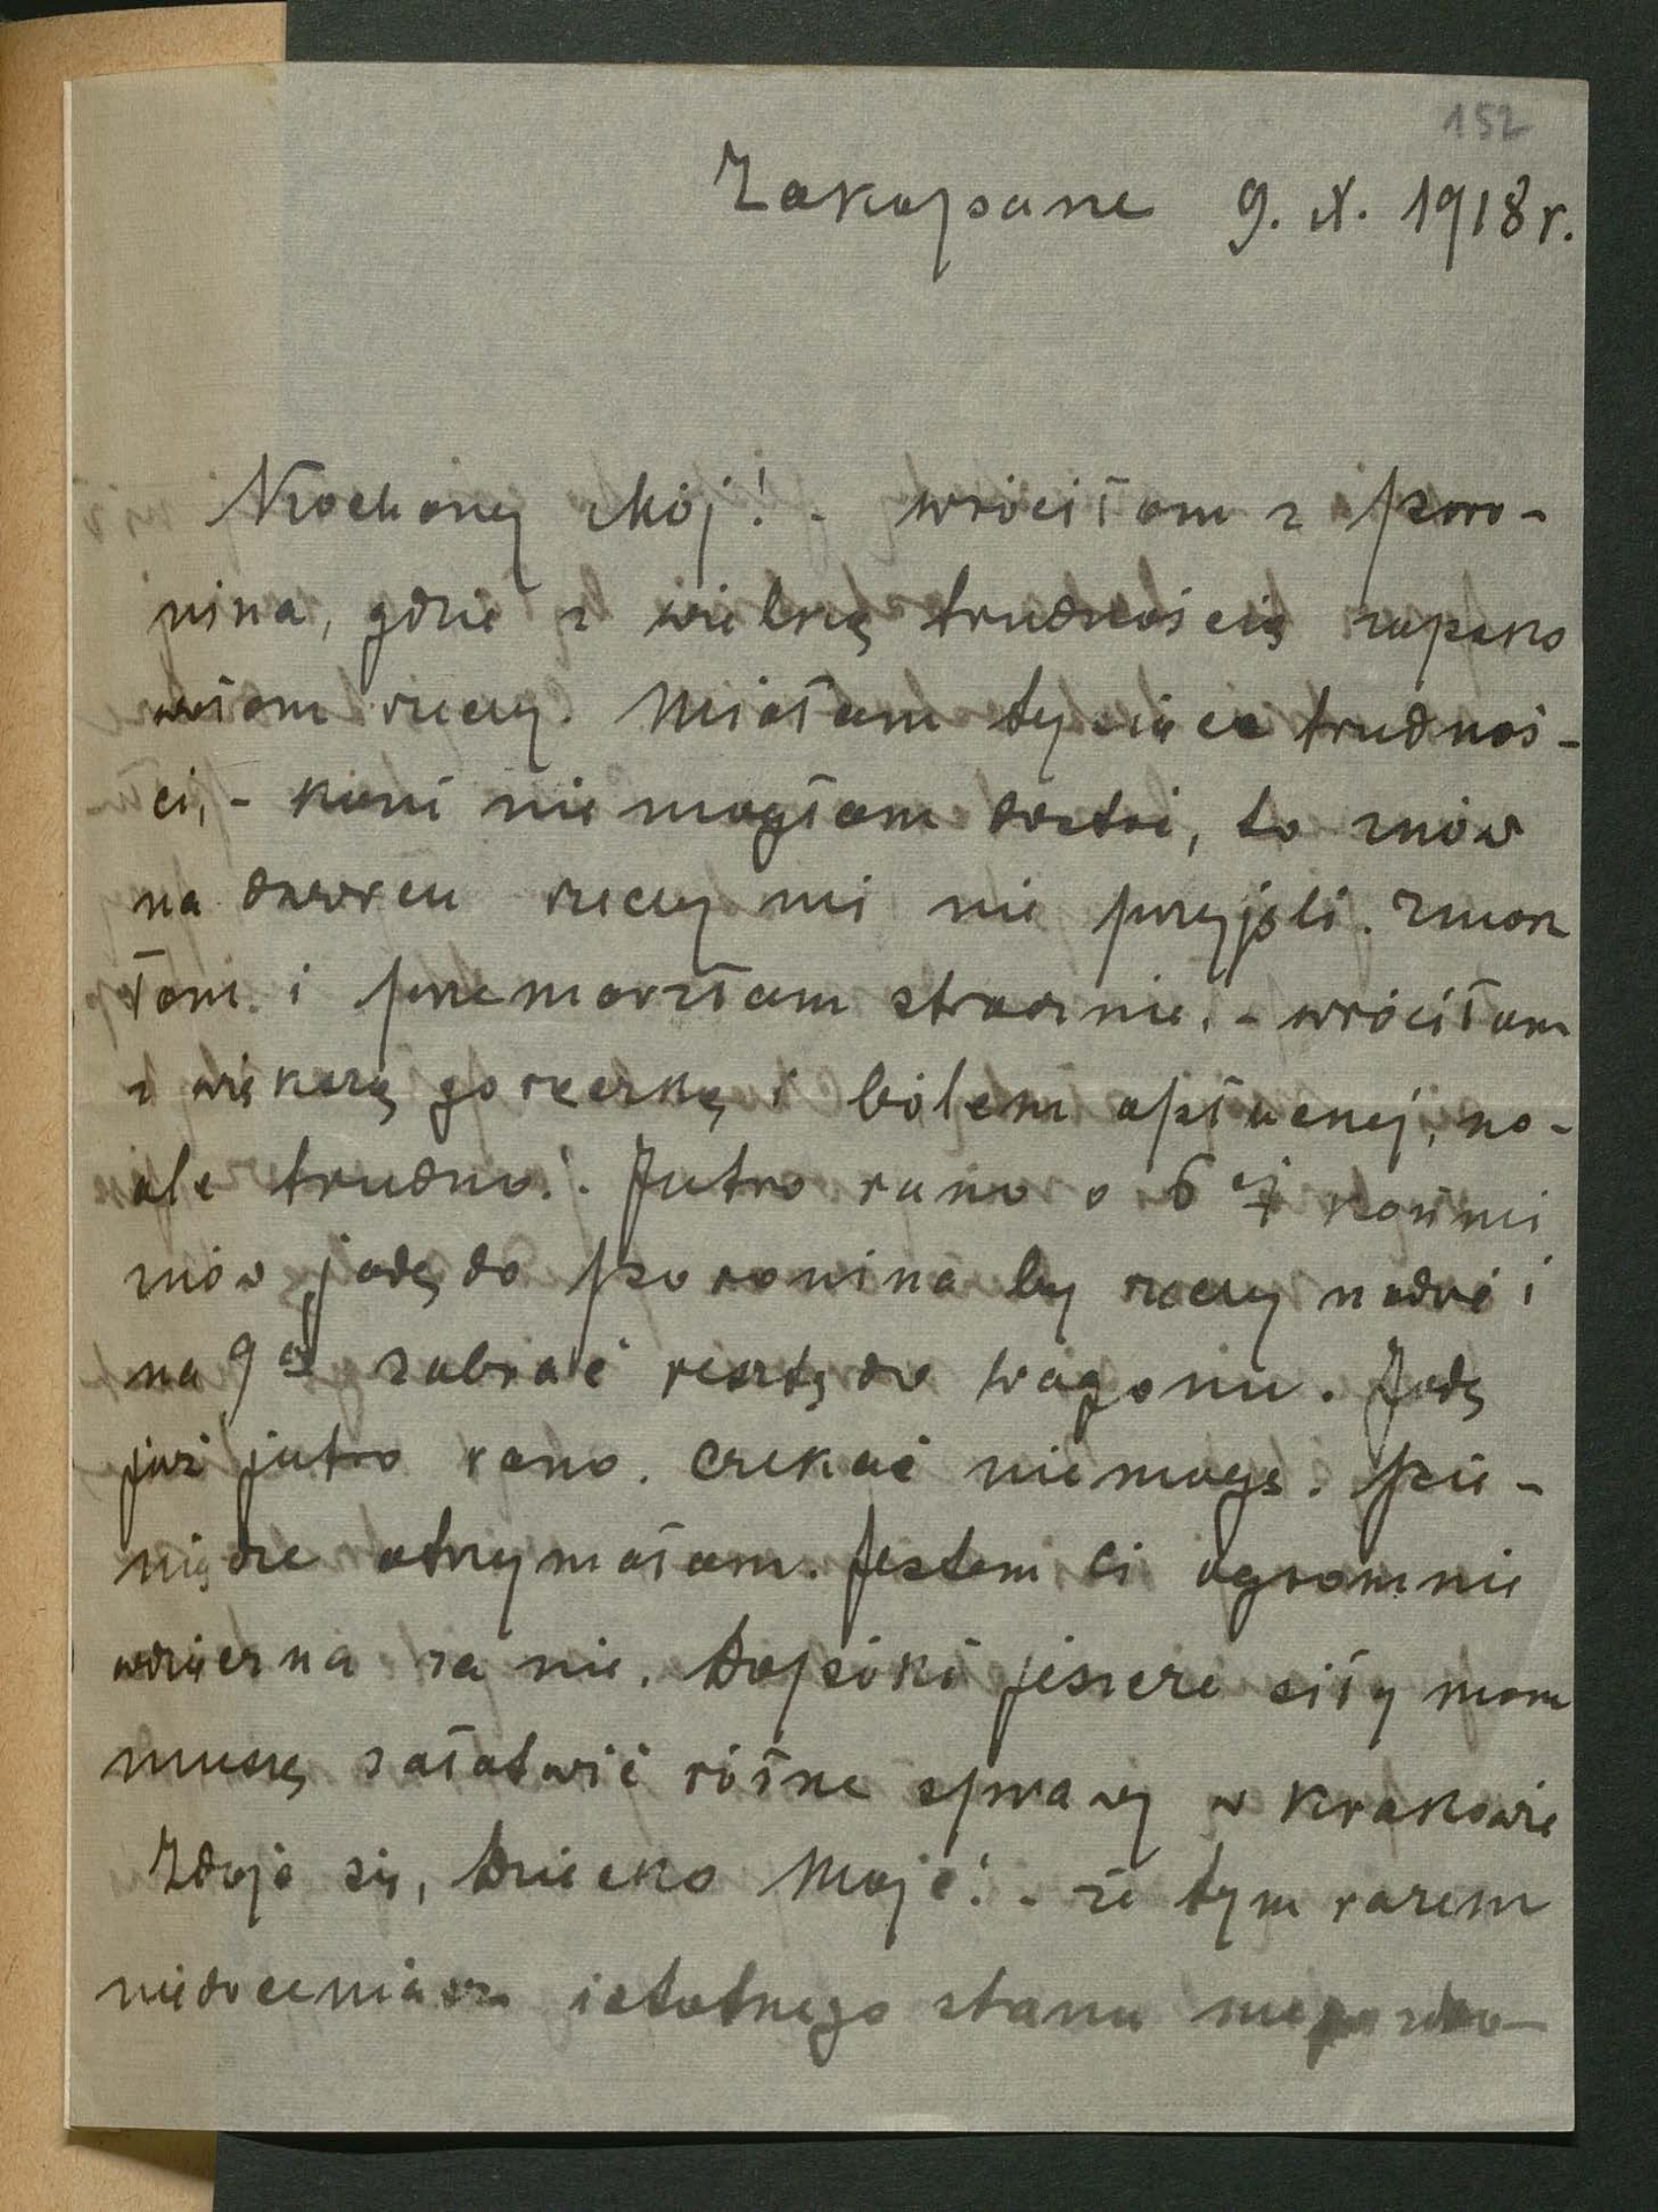 152
Zakopane 9. X. 1918 r.
Kochany Mój! - wróciłam z Poro-
nina, gdzie z wielką trudnością zapako
wałam rzeczy. Miałam tysiące trudnoś-
ci, - koni nie mogłam dostać, to znów
na dworcu rzeczy mi nie przyjęli. Zmok
łam i przemarzłam strasznie, - wróciłam
z większą gorączką i bólem opłucnej, no -
ale trudno! - Jutro rano o 6ej końmi
znów jadę do Poronina by rzeczy nadać i
na 9ą zabrać resztę do wagonu. Jadę
już jutro rano. Czekać nie mogę. Pie-
niądze otrzymałam. Jestem Ci ogromnie
wdzięczna za nie. Dopóki jeszcze siły mam
muszę załatwić różne sprawy w Krakowie
Zdaje się, Dziecko Moje! - że tym razem
niedoceniasz istotnego stanu mego zdro-